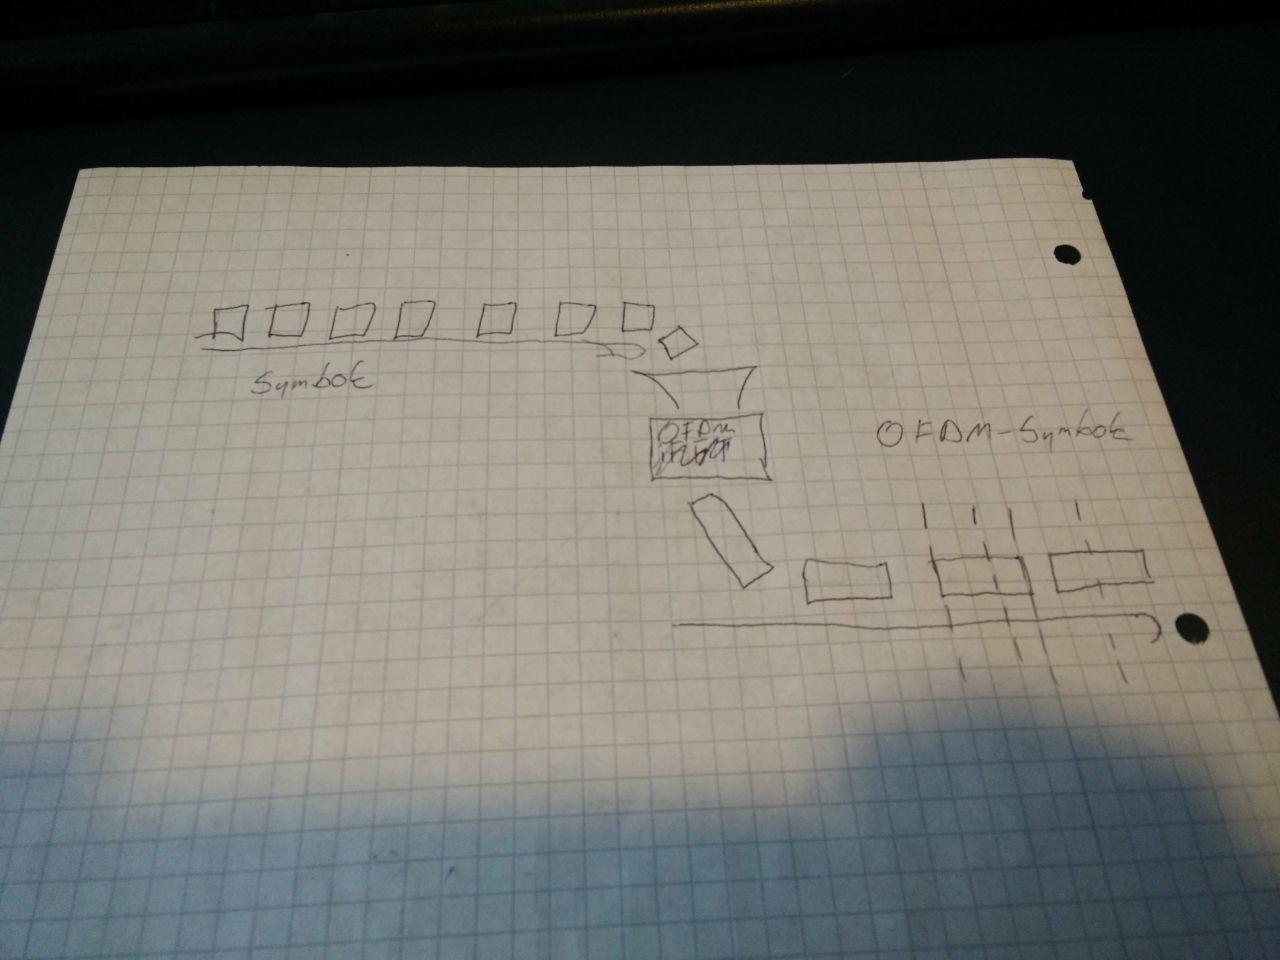 Symbole
OFDM
OFDM-Symbole